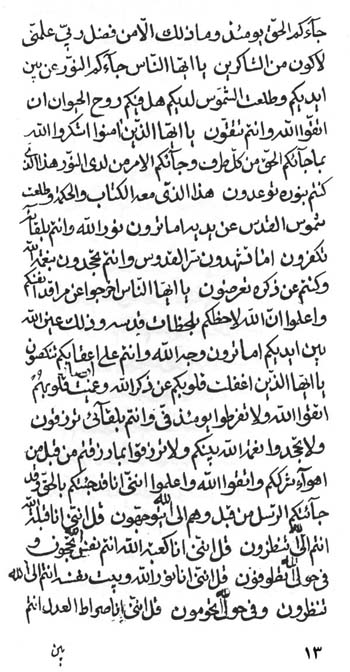 جآءكم الحق يومئذ وما ذلك الّا من فضل ربّي علمتی
لاكون من الشاكرين يا ايّها النّاس جآءكم النّور عن بين
ايديكم وطلعت الشموس لديكم هل فيكم روح الحيوان ان
اتّقوا الله وانتم تتّقون يا ايّها الّذين امنوا اشكروا الله
بما جآئكم الحقّ من كلّ طرف وجآئكم الامر من لدى النّور هذا الّذی
كنتم بنوره توعدون هذا الّذی معه الكتاب والحكمة وطلعت
شموس القدس عن يديه اما ترون نور الله وانتم بلقآئه
تكفرون اما تشهدون سرّ القدّوس وانتم تجحدون بنعمة الله
وكنتم عن ذكره تعرضون يا ايّها النّاس ارجعوا عن مراقد انفسكم
واعلموا انّ الله لاحظكم بلحظات قدسه وذلك عين الله
بين ايديكم اما ترون وجه الله وانتم على اعقابكم تنكصون
يا ايّها الّذين اغفلت قلوبكم عن ذكر الله وعميت قلوبهم
اتّقوا الله ولا تفرطوا يومئذ فی وانتم بلقآئی ترزقون
ولا تجحدوا نعمة الله بينكم ولا ترزقوا بما رزقتم من قبل من
اهوآء شرككم واتّقوا الله واعلموا انّنی انا قد جئتكم بالحقّ وقد
جآئتكم الرّسل من قبل وهم الى الله يتوجّهون قل انّنی انا قبلة الله
انتم الیّ تنظرون قل انّنی انا كعبة الله انتم بفنآئی تحجّون و
فی حولی تطوفون قل انّنی انا نور الله وبيت نفسه انتم الیّ الله
تنظرون وفی حولی تحومون قل انّنی انا صراط العدل انتم
١٣
بين